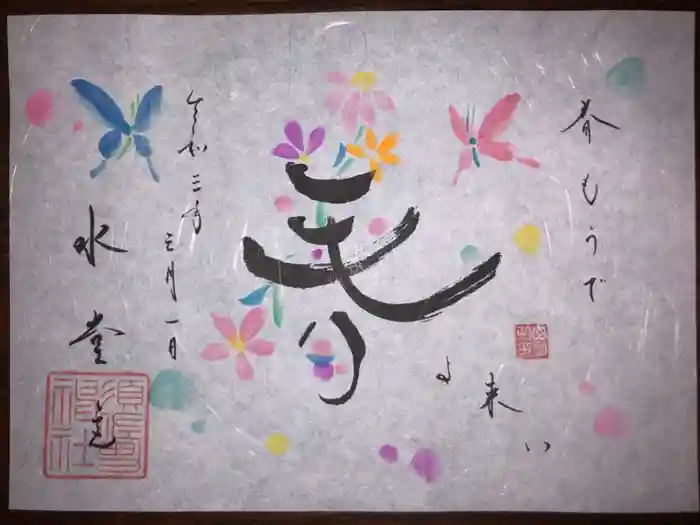 春もうで
春
よ来い
令和三年
三月一日
水堂
須佐男神社